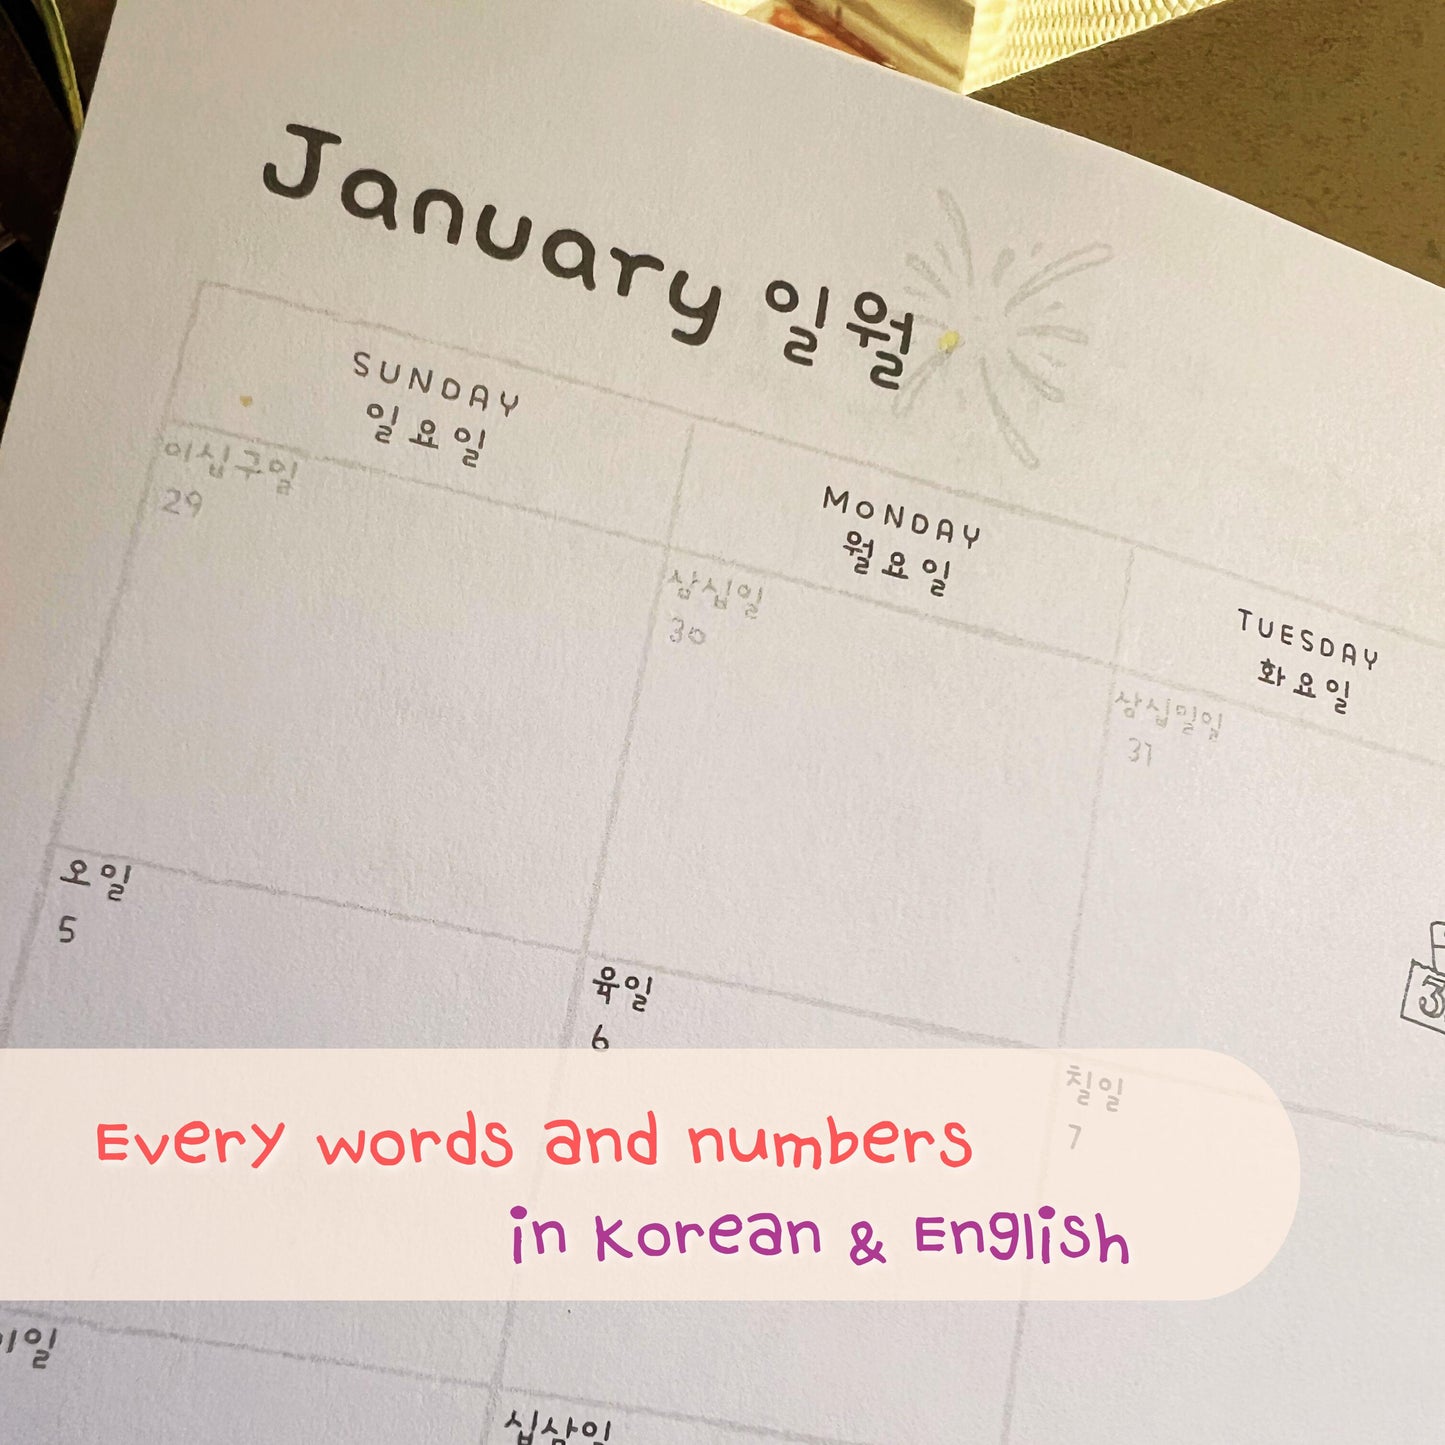 January 일월
SUNDAY
일요일
MONDAY
월요일
TUESDAY
화요일
이십구일
29
삼십일
30
삼십일일
31
오일
5
육일
6
칠일
7
Every words and numbers
in Korean & English
십삼일